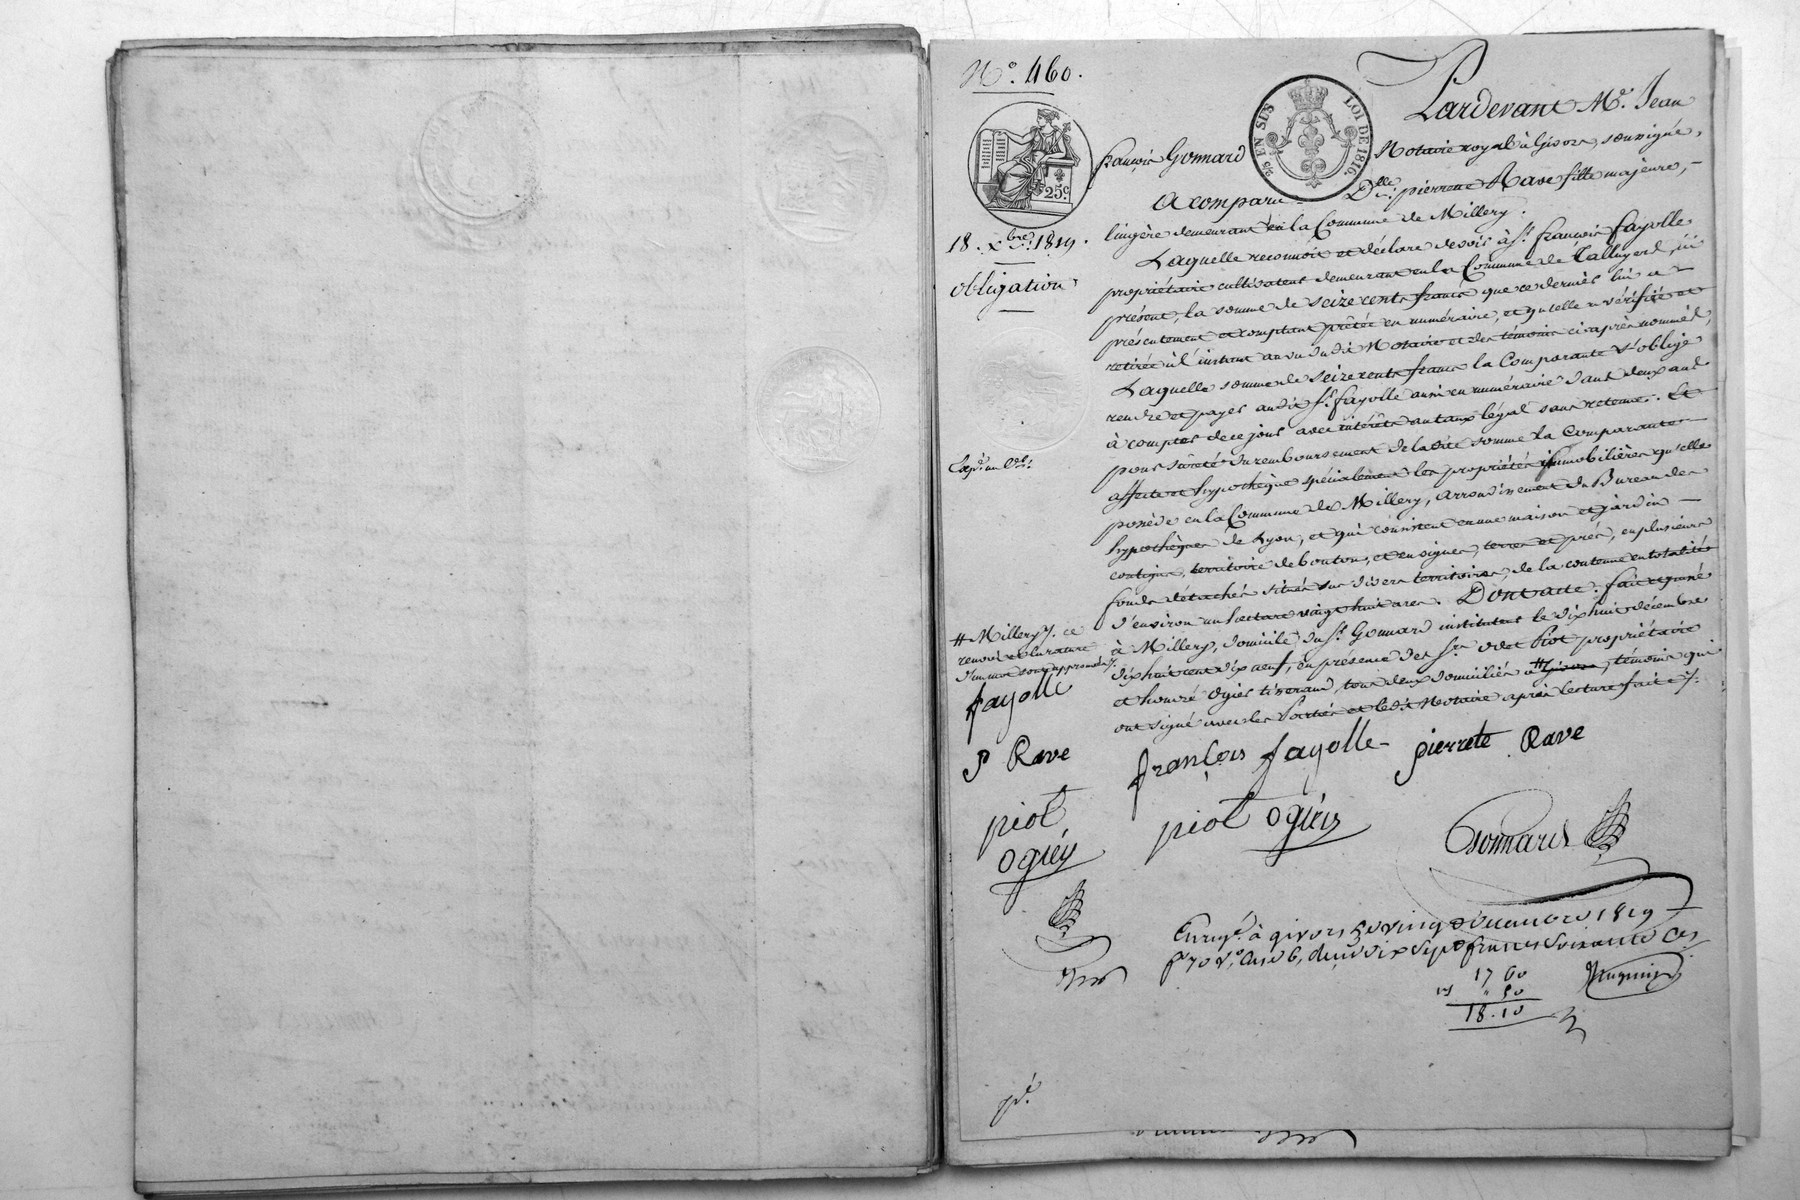 N.° 460.
25 c.
⅖ EN SUS
LOI DE 1816.
18 Xbre 1819.
obligation
Pardevant Me. Jean
françois Gonnard Notaire royal à Givors, soussigné,
A comparu Dlle. pierrette Rave fille majeure,
lingère demeurant en la Commune de Millery.
Laquelle reconnoit et déclare devoir à Sr. françois fayolle
propriétaire cultivateur demeurant en la Commune de Talluyerd, ici
présent, la somme de seize cents francs que ce dernier lui a
présentement et comptant prêtée en numéraire, et qu'elle a vérifiée et
retirée à l'instant au vu dudit Notaire et des témoins ci-après nommés,
Laquelle somme de seize cents francs la Comparante s'oblige
rendre et payer audit Sr. fayolle aussi en numéraire dans deux ans
à compter de ce jour avec intérêts au taux légal sans retenue. Et
pour sûreté du remboursement de ladite somme la Comparante
affecte et hypothèque spécialement les propriétés immobilières qu'elle
possède en la Commune de Millery, arrondissement du Bureau des
hypothèques de Lyon, et qui consistent en une maison et jardin
contigus, territoire de bouton, et en vignes, terres et prés, en plusieurs
fonds détachés situés sur divers territoires, de la contenue en totalité
d'environ un hectare vingt huit ares. Dont acte: fait et passé
à Millery, domicile du Sr. Gonnard instituteur le dix huit décembre
dix huit cent dix neuf, en présence des Srs. odet Piot propriétaire
et honoré Ogier tisserand, tous deux domiciliés à # Givors, témoins qui
ont signé avec les Parties et ledit Notaire après lecture faite ./.
# Millery ./. ce
renvoi et la rature
d'un mot sont approuvés ./.
fayolle
P Rave
piot
ogiéy
françois fayolle
pierrete Rave
piot ogiéy
Gonnard
Enregé. à givors le vingt décembre 1819
fo 70 Vo. Case 6, reçu dix sept francs soixante ces
17 60
" 50
18.10